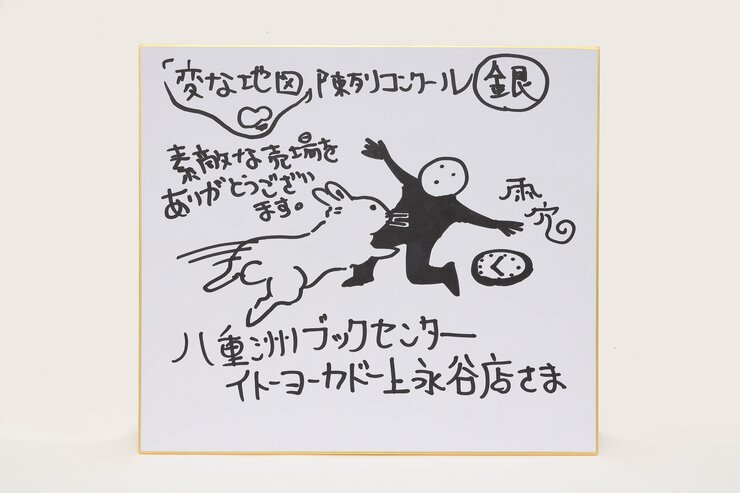 「変な地図」陳列コンクール 銀
素敵な売場を
ありがとうござい
ます。
雨穴
八重洲ブックセンター
イトーヨーカドー上永谷店さま